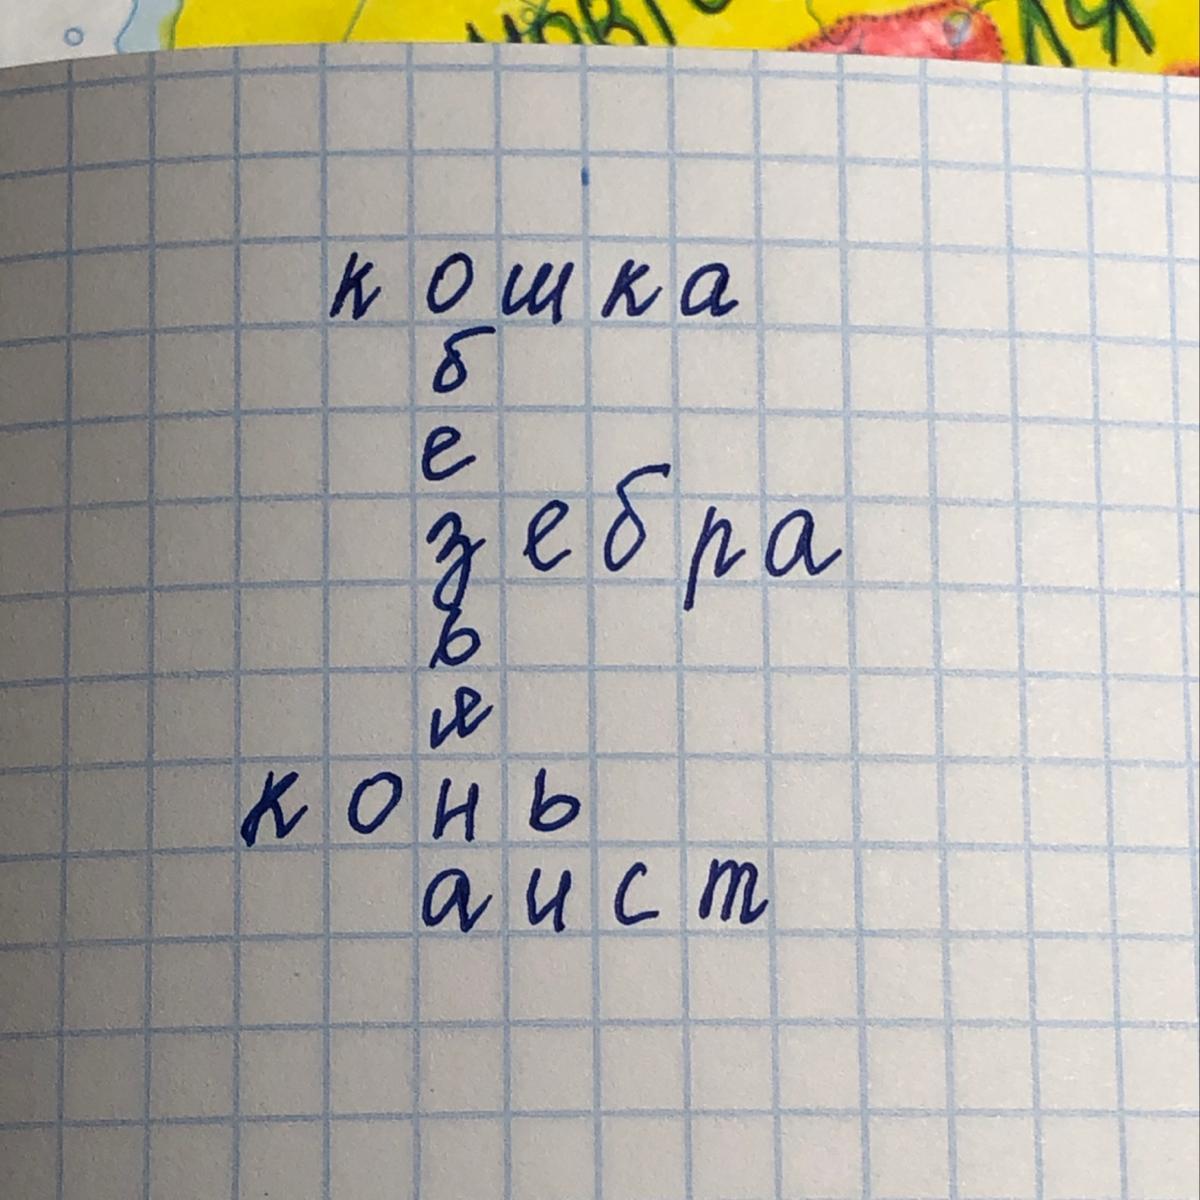 кошка
б
е
зебра
ь
я
конь
аист